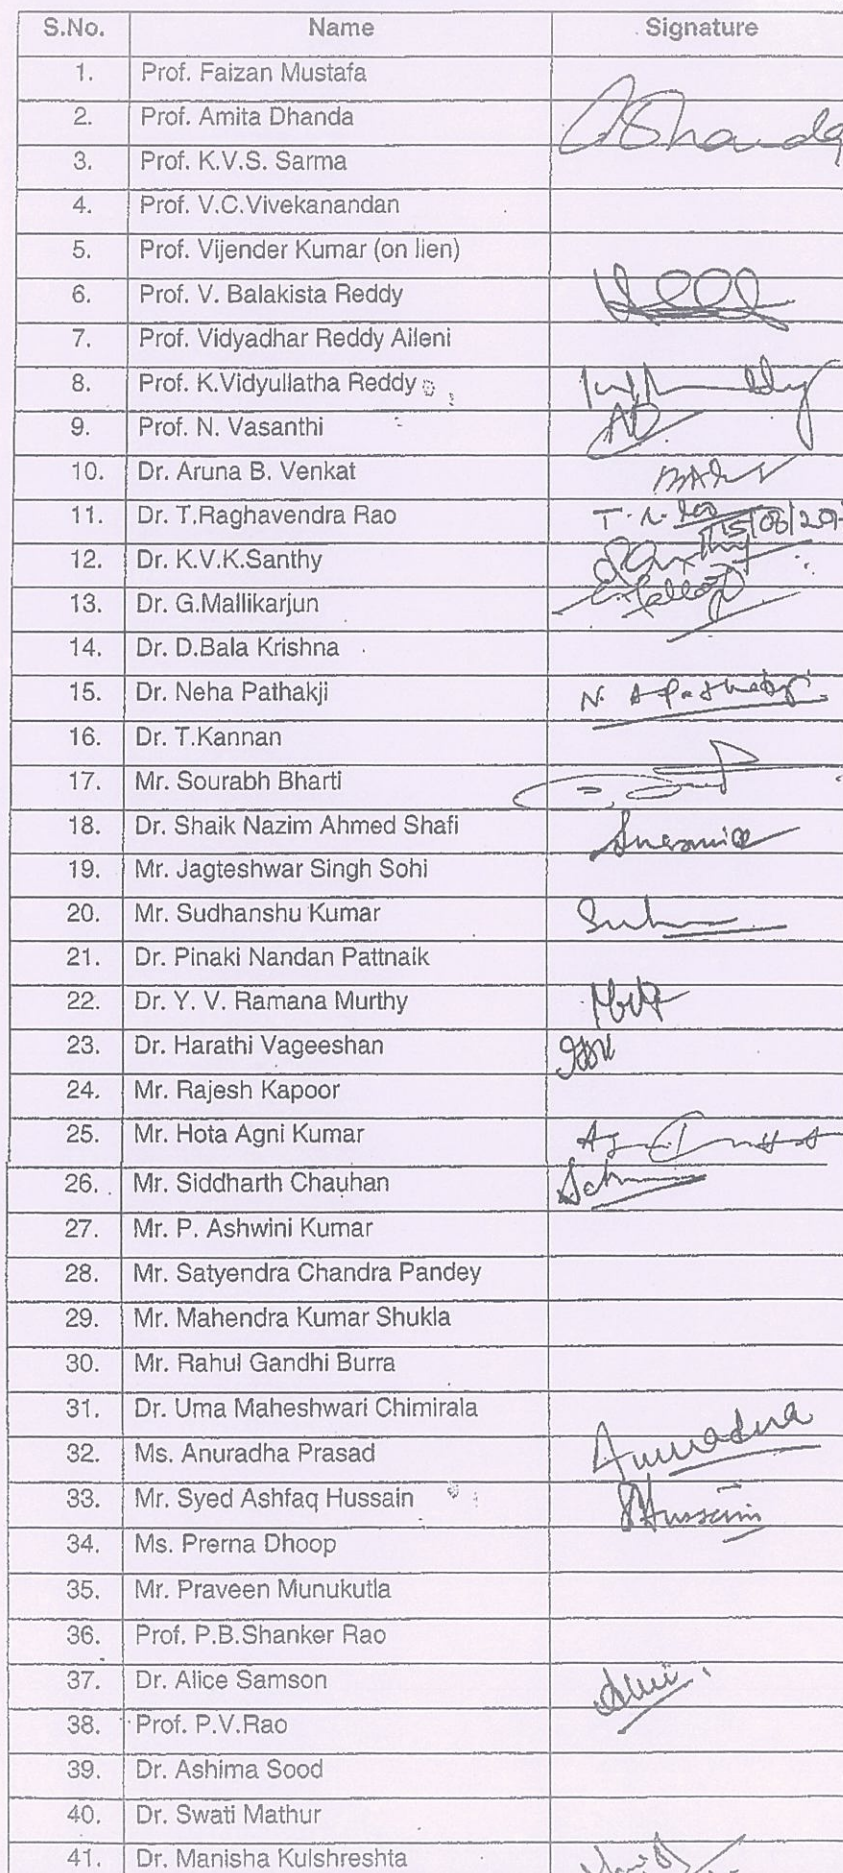 S.No. Name Signature
1. Prof. Faizan Mustafa
2. Prof. Amita Dhanda ADhanda
3. Prof. K.V.S. Sarma
4. Prof. V.C.Vivekanandan
5. Prof. Vijender Kumar (on lien)
6. Prof. V. Balakista Reddy
7. Prof. Vidyadhar Reddy Aileni
8. Prof. K.Vidyullatha Reddy
9. Prof. N. Vasanthi
10. Dr. Aruna B. Venkat
11. Dr. T.Raghavendra Rao T.R. Rao
12. Dr. K.V.K.Santhy
13. Dr. G.Mallikarjun
14. Dr. D.Bala Krishna
15. Dr. Neha Pathakji
16. Dr. T.Kannan
17. Mr. Sourabh Bharti
18. Dr. Shaik Nazim Ahmed Shafi
19. Mr. Jagteshwar Singh Sohi
20. Mr. Sudhanshu Kumar
21. Dr. Pinaki Nandan Pattnaik
22. Dr. Y. V. Ramana Murthy
23. Dr. Harathi Vageeshan
24. Mr. Rajesh Kapoor
25. Mr. Hota Agni Kumar
26. Mr. Siddharth Chauhan
27. Mr. P. Ashwini Kumar
28. Mr. Satyendra Chandra Pandey
29. Mr. Mahendra Kumar Shukla
30. Mr. Rahul Gandhi Burra
31. Dr. Uma Maheshwari Chimirala
32. Ms. Anuradha Prasad Anuradha
33. Mr. Syed Ashfaq Hussain Hussain
34. Ms. Prerna Dhoop
35. Mr. Praveen Munukutla
36. Prof. P.B.Shanker Rao
37. Dr. Alice Samson
38. Prof. P.V.Rao
39. Dr. Ashima Sood
40. Dr. Swati Mathur
41. Dr. Manisha Kulshreshta